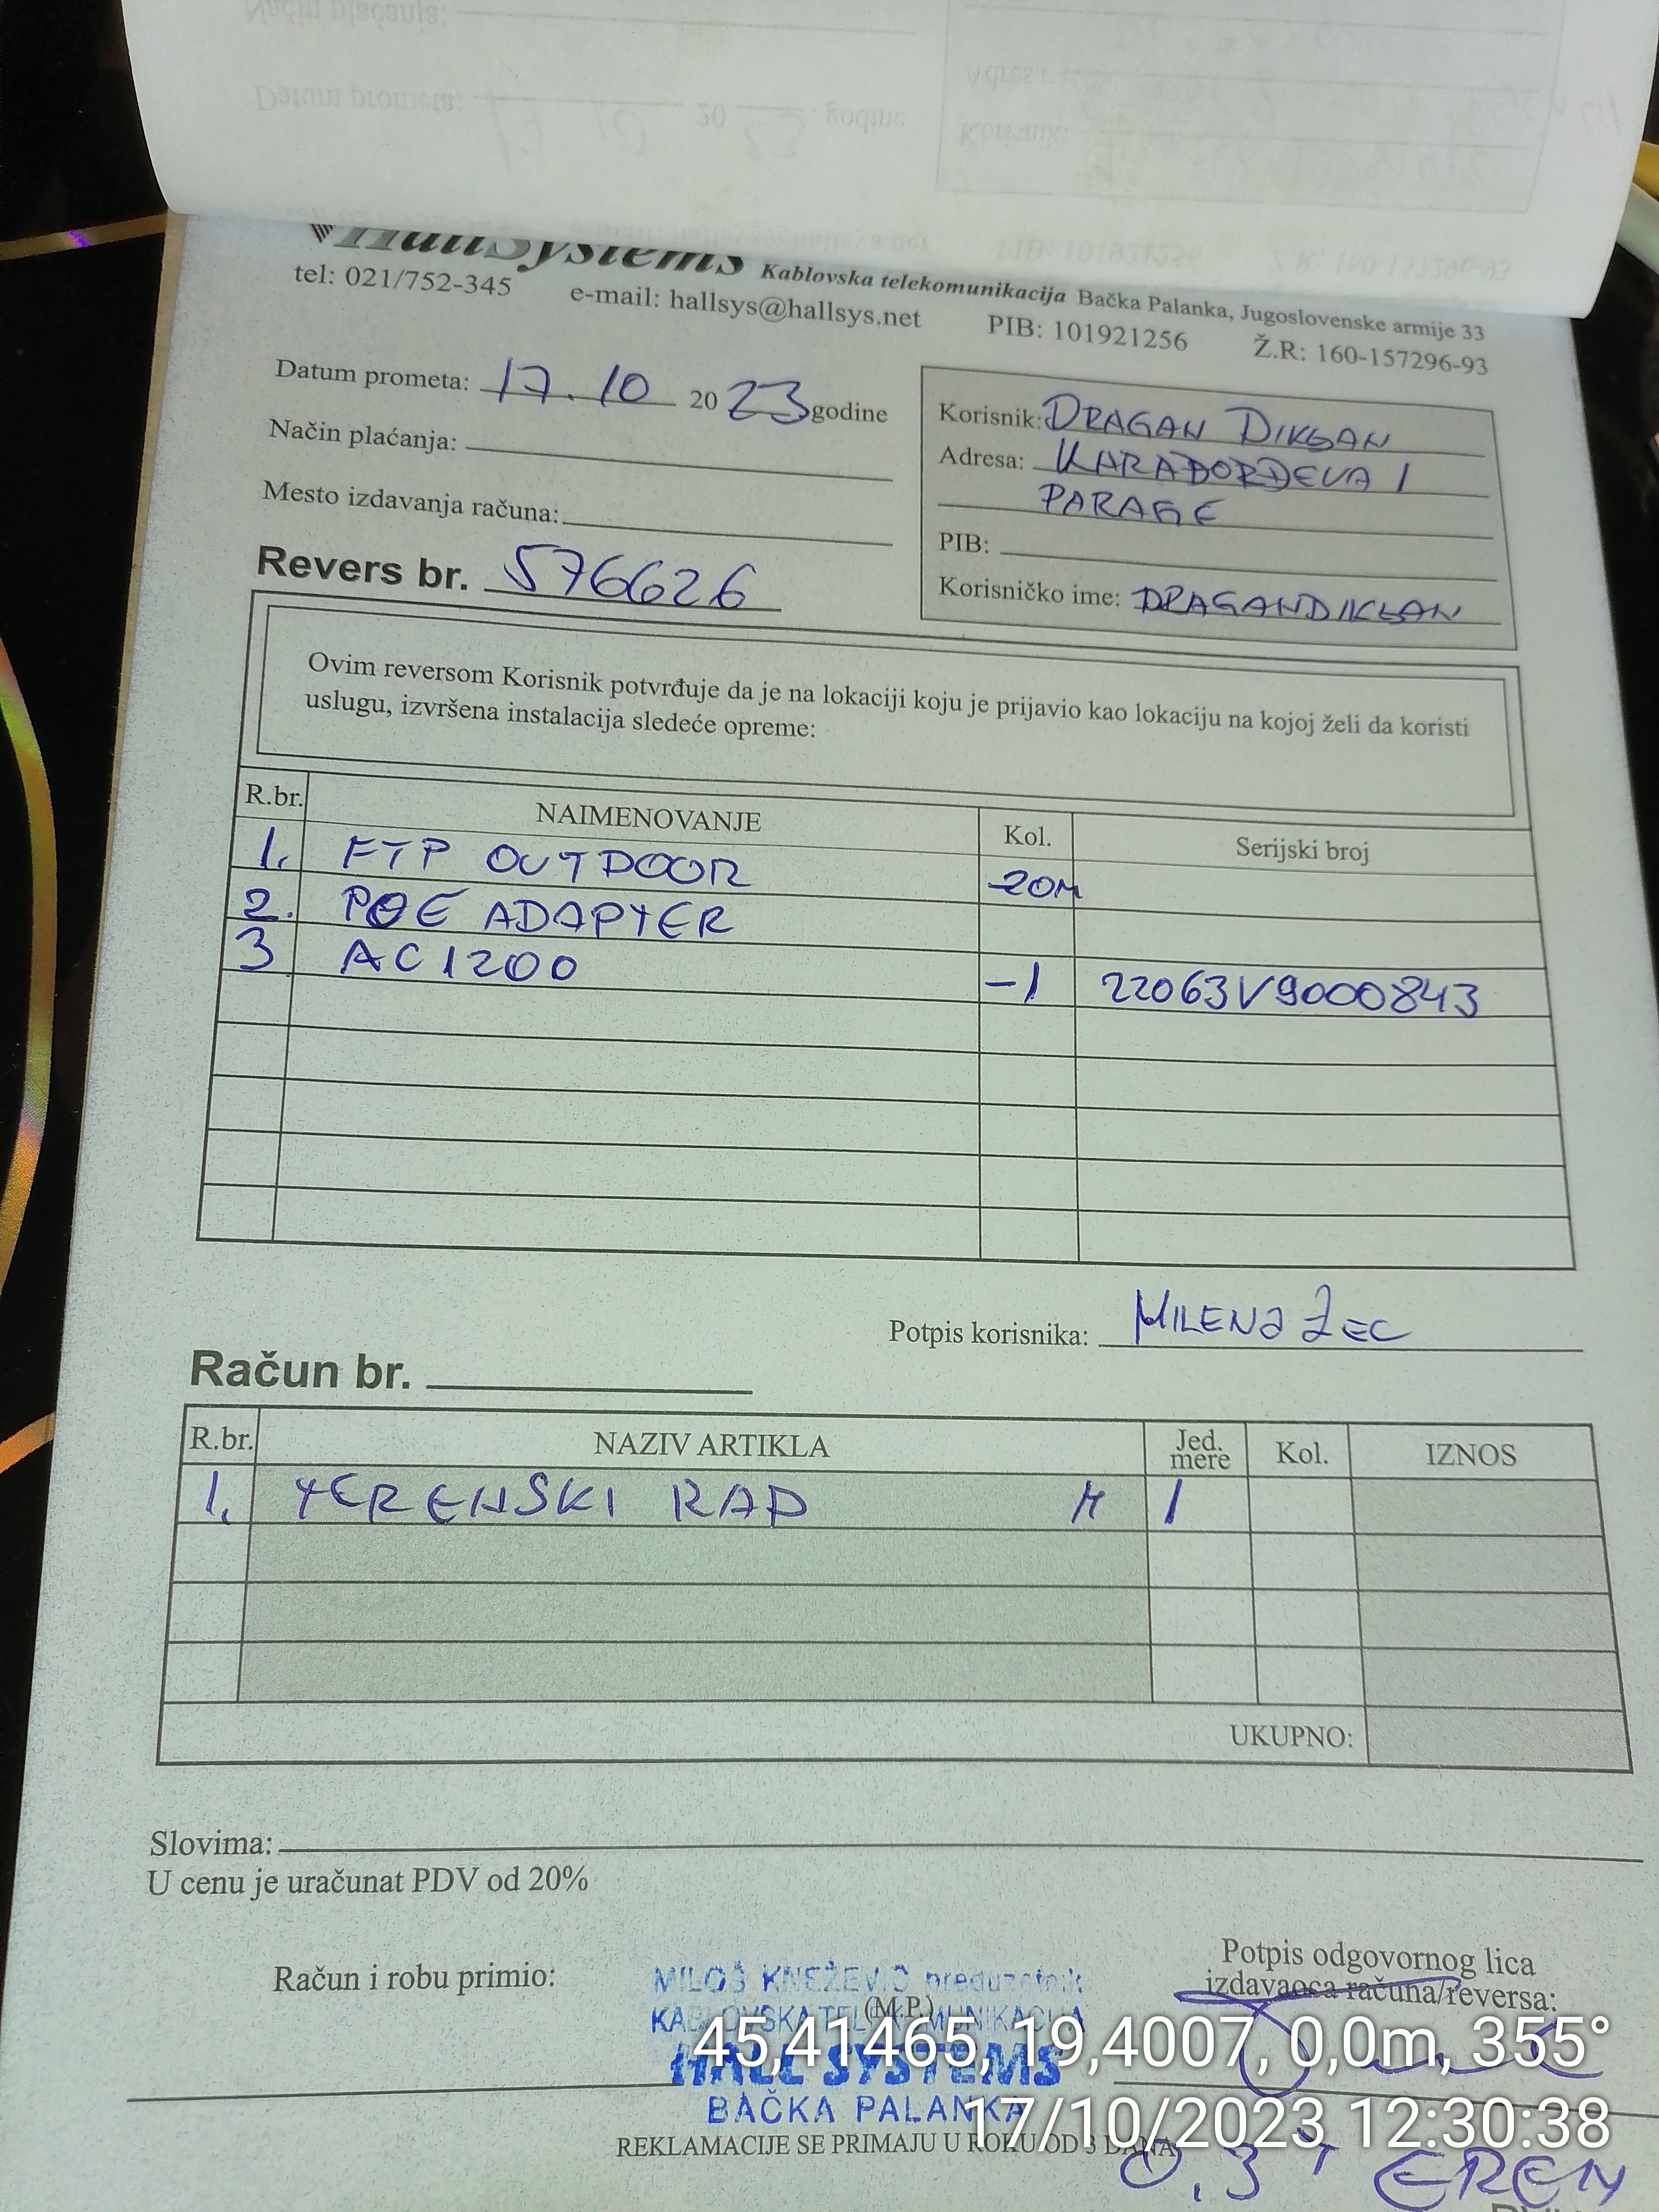 HallSystems Kablovska telekomunikacija Bačka Palanka, Jugoslovenske armije 33
tel: 021/752-345 e-mail: hallsys@hallsys.net PIB: 101921256 Ž.R: 160-157296-93
Datum prometa: 17.10 2023 godine
Način plaćanja:
Mesto izdavanja računa:
Revers br. 576626
Korisnik: DRAGAN DIKGAN
Adresa: KARAĐORĐEVA 1
PARAGE
PIB:
Korisničko ime: DRAGANDIKGAN
Ovim reversom Korisnik potvrđuje da je na lokaciji koju je prijavio kao lokaciju na kojoj želi da koristi
uslugu, izvršena instalacija sledeće opreme:
R.br. NAIMENOVANJE Kol. Serijski broj
1. FTP OUTDOOR -20M
2. POE ADAPTER
3 AC1200 -1 22063V9000843
Potpis korisnika: MILENA ZEC
Račun br.
R.br. NAZIV ARTIKLA Jed. mere Kol. IZNOS
1. TERENSKI RAD H 1
UKUPNO:
Slovima:
U cenu je uračunat PDV od 20%
Račun i robu primio:
MILOŠ KNEŽEVIĆ preduzetnik
(M.P.)
KABLOVSKA TELEKOMUNIKACIJA
HALL SYSTEMS
BAČKA PALANKA
Potpis odgovornog lica
izdavaoca računa/reversa:
45,41465, 19,4007, 0,0m, 355°
17/10/2023 12:30:38
REKLAMACIJE SE PRIMAJU U ROKU OD 3 DANA